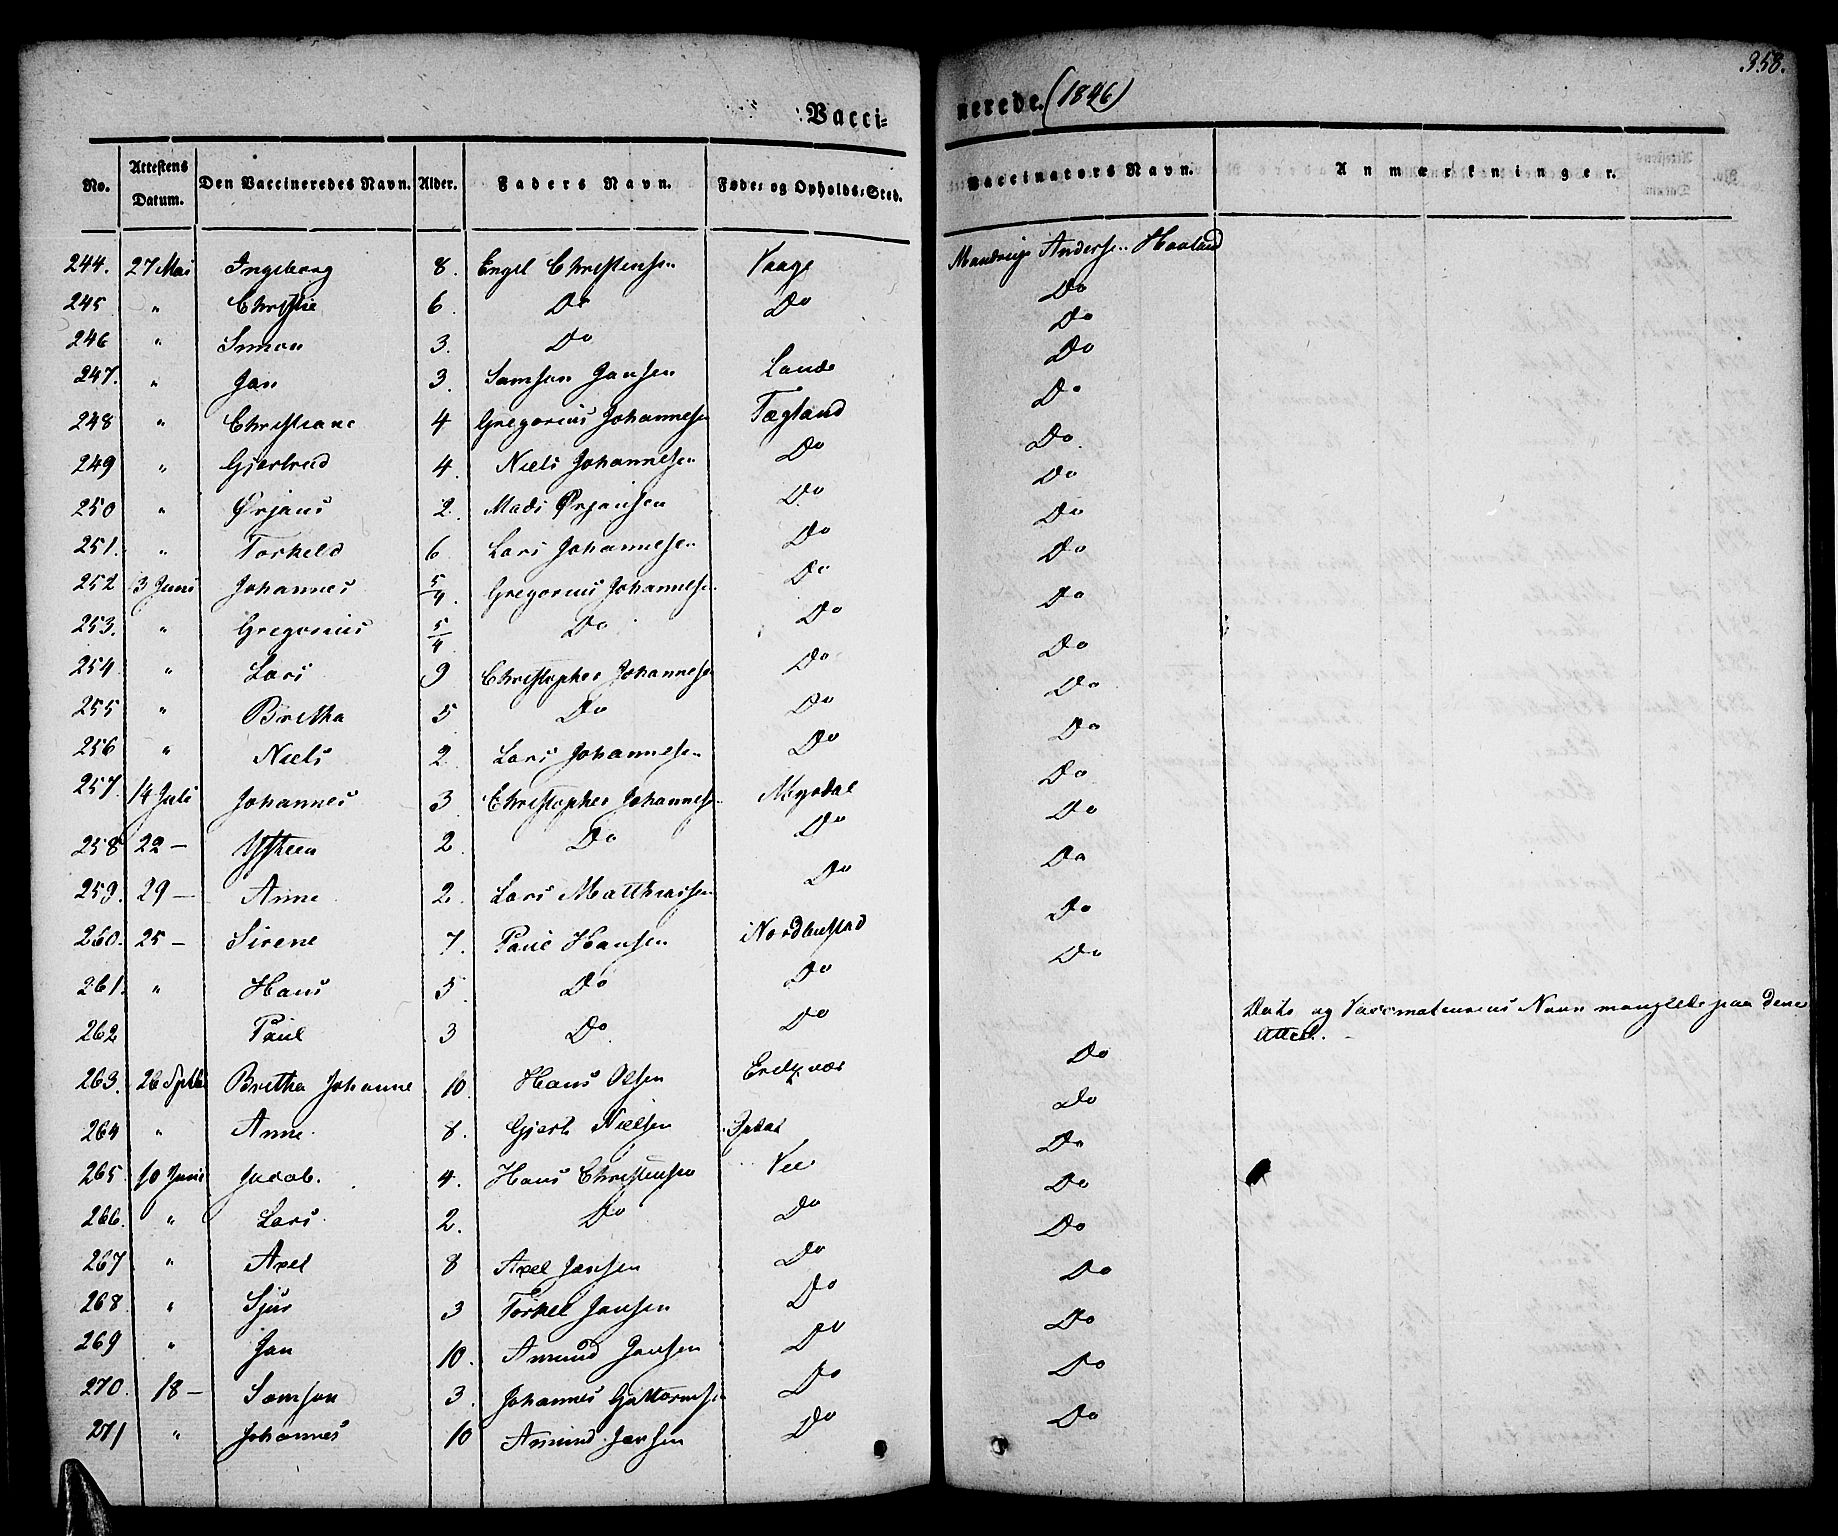 358.
Vacci= nerede. (1846)
No. Attestens Datum. Den Vaccineredes Navn. Alder. Faders Navn. Føde= og Opholds=Sted. Vaccinators Navn. Anmærkninger.
244. 27 Mai Ingeborg 8. Engel Christensen Vaage Andersen Haaland
245 " Christie 6. Do Do Do
246 " Simon 3. Do Do
247. " Jan 3. Samson Jansen Lande Do
248 " Christiane 4 Gregorius Johannesen Tægland Do
249 " Gjertrud 4. Niels Johannesen Do Do
250 " Ørjans 2. Mads Ørjansen Do Do
251. " Torkeld 6 Lars Johannesen Do Do
252 3 Juni Johannes 5/4. Gregorius Johannesen Do Do
253. " Gregorius 5/4. Do Do Do
254 " Lars 9 Christopher Johannesen Do Do
255 " Bretha 5 Do Do Do
256 " Niels 2. Lars Johannesen Do Do
257. 14 Juli Johannes 3. Christopher Johannesen Myrdal Do
258 22 — 2 Do Do Do
259. 29 — Anne 2. Lars Matthiassen Do Do
260. 25 — Sirene 7. Paul Hansen Nordhustad Do
261. " Hans 5. Do Do Do
262 Paul 3 Do Do Dato og Vaccinateurens Navn manglede paa denne Attest. —
263. 26 Septb Bretha Johanne 10. Hans Olsen Do
264 " Anne. 8. Gjert Nielsen Opdal Do
265. 10 Juni Jacob. 4. Hans Christensen Vee Do
266. " Lars 2. Do Do Do
267 " Axel 8 Axel Jansen Do Do
268. " Sjur 3 Torkel Jansen Do Do
269 " Jan 10. Amund Jansen Do Do
270. 18 — Samson 3. Johannes Guttormsen Do Do
271 " Johannes 10 Amund Jansen Do Do